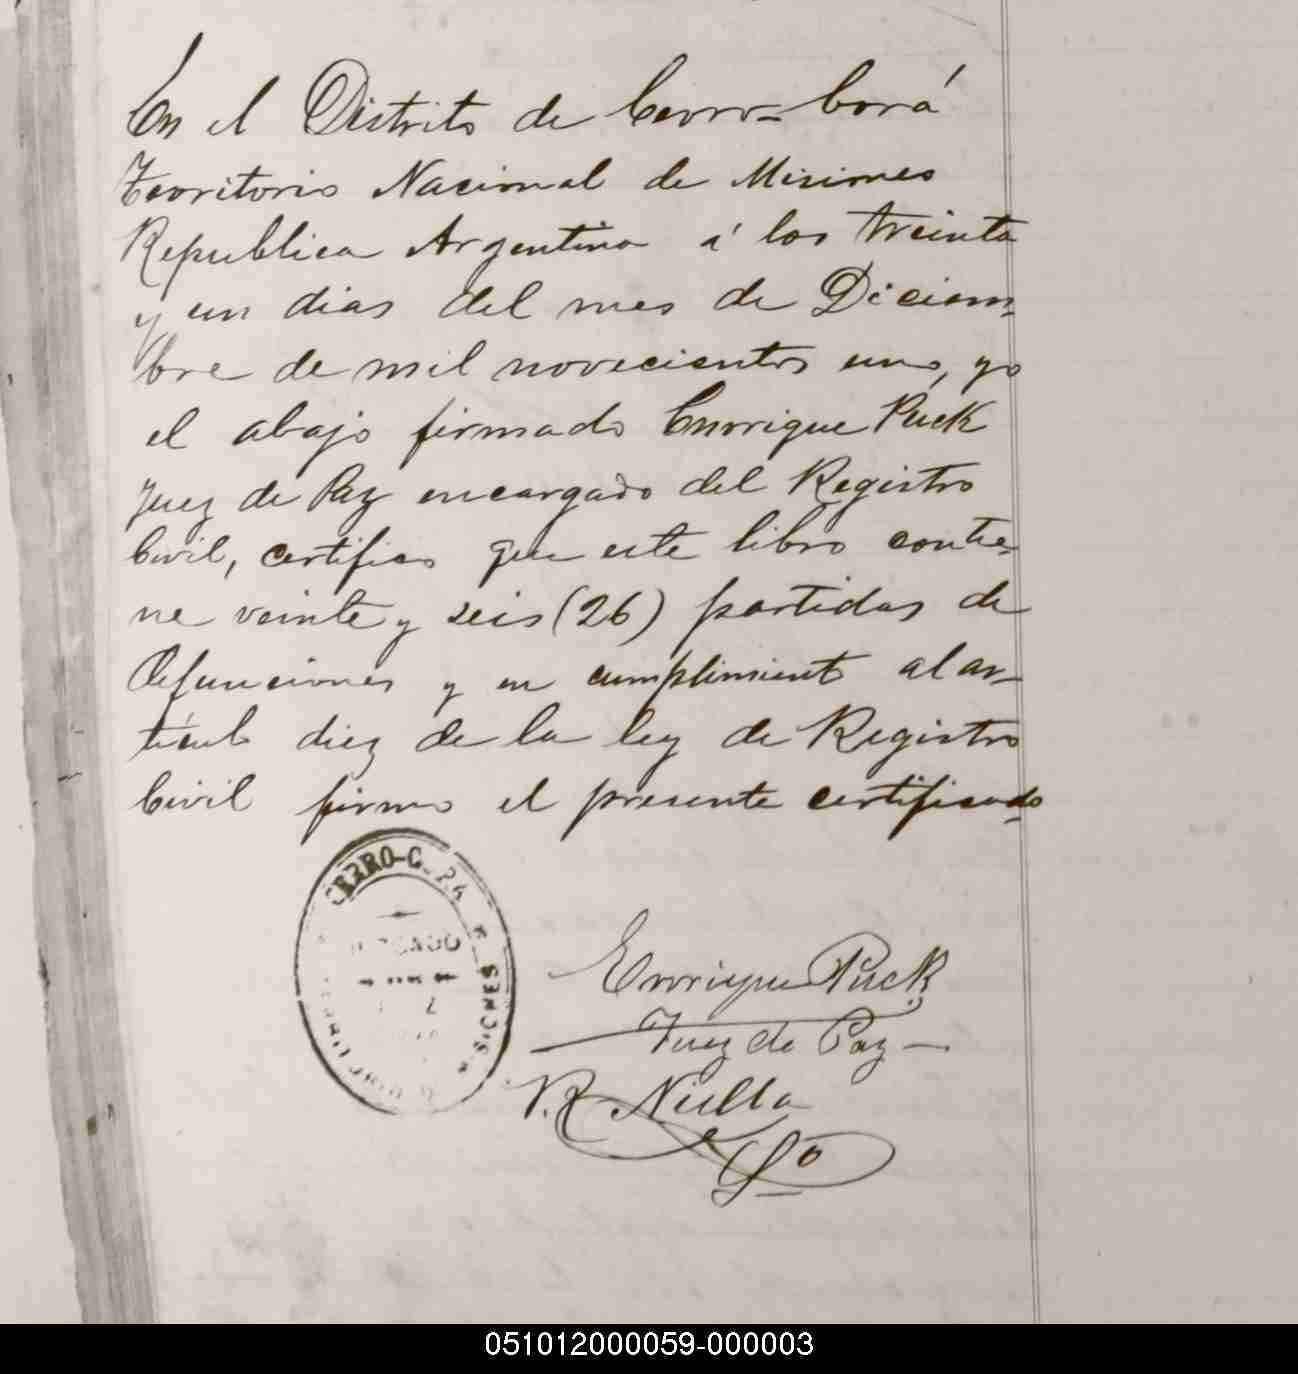 En el Distrito de Cerro-Corá
Territorio Nacional de Misiones
Republica Argentina á los treinta
y un dias del mes de Diciem-
bre de mil novecientos uno, yo
el abajo firmado Enrrique Puck
Juez de Paz encargado del Registro
Civil, certifico que este libro contie-
ne veinte y seis (26) partidas de
Defunciones y en cumplimiento al ar-
tículo diez de la ley de Registro
Civil firmo el presente certificado
CERRO-CORA
JUZGADO
MISIONES
Enrrique Puck
Juez de Paz
051012000059-000003